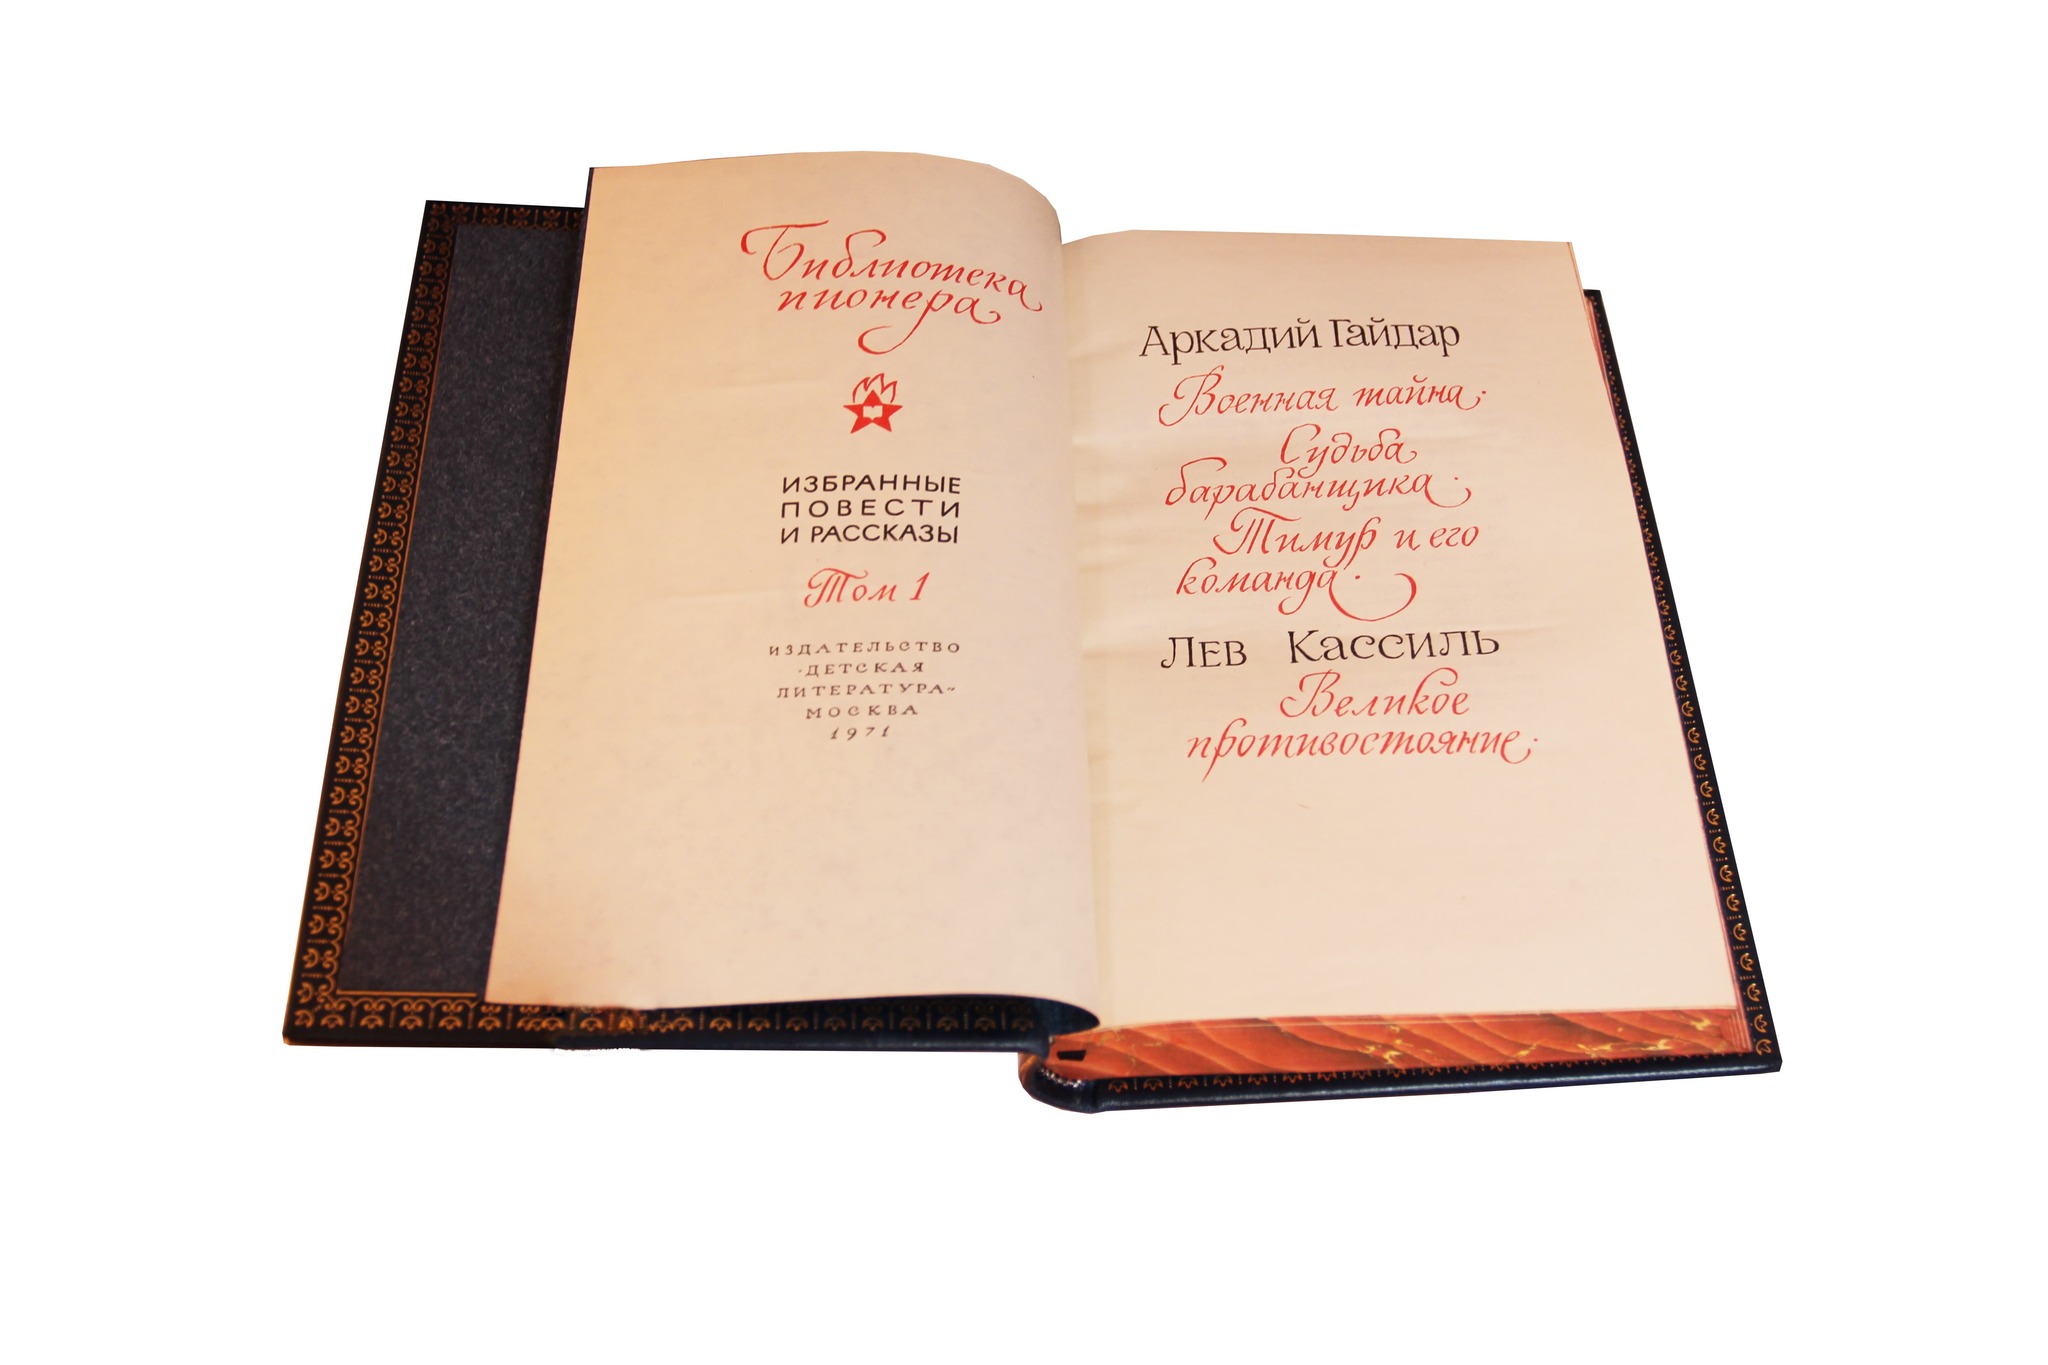 Библиотека
пионера
ИЗБРАННЫЕ
ПОВЕСТИ
И РАССКАЗЫ
Том 1
ИЗДАТЕЛЬСТВО
«ДЕТСКАЯ
ЛИТЕРАТУРА»
МОСКВА
1971
Аркадий Гайдар
Военная тайна.
Судьба
барабанщика.
Тимур и его
команда.
Лев Кассиль
Великое
противостояние.